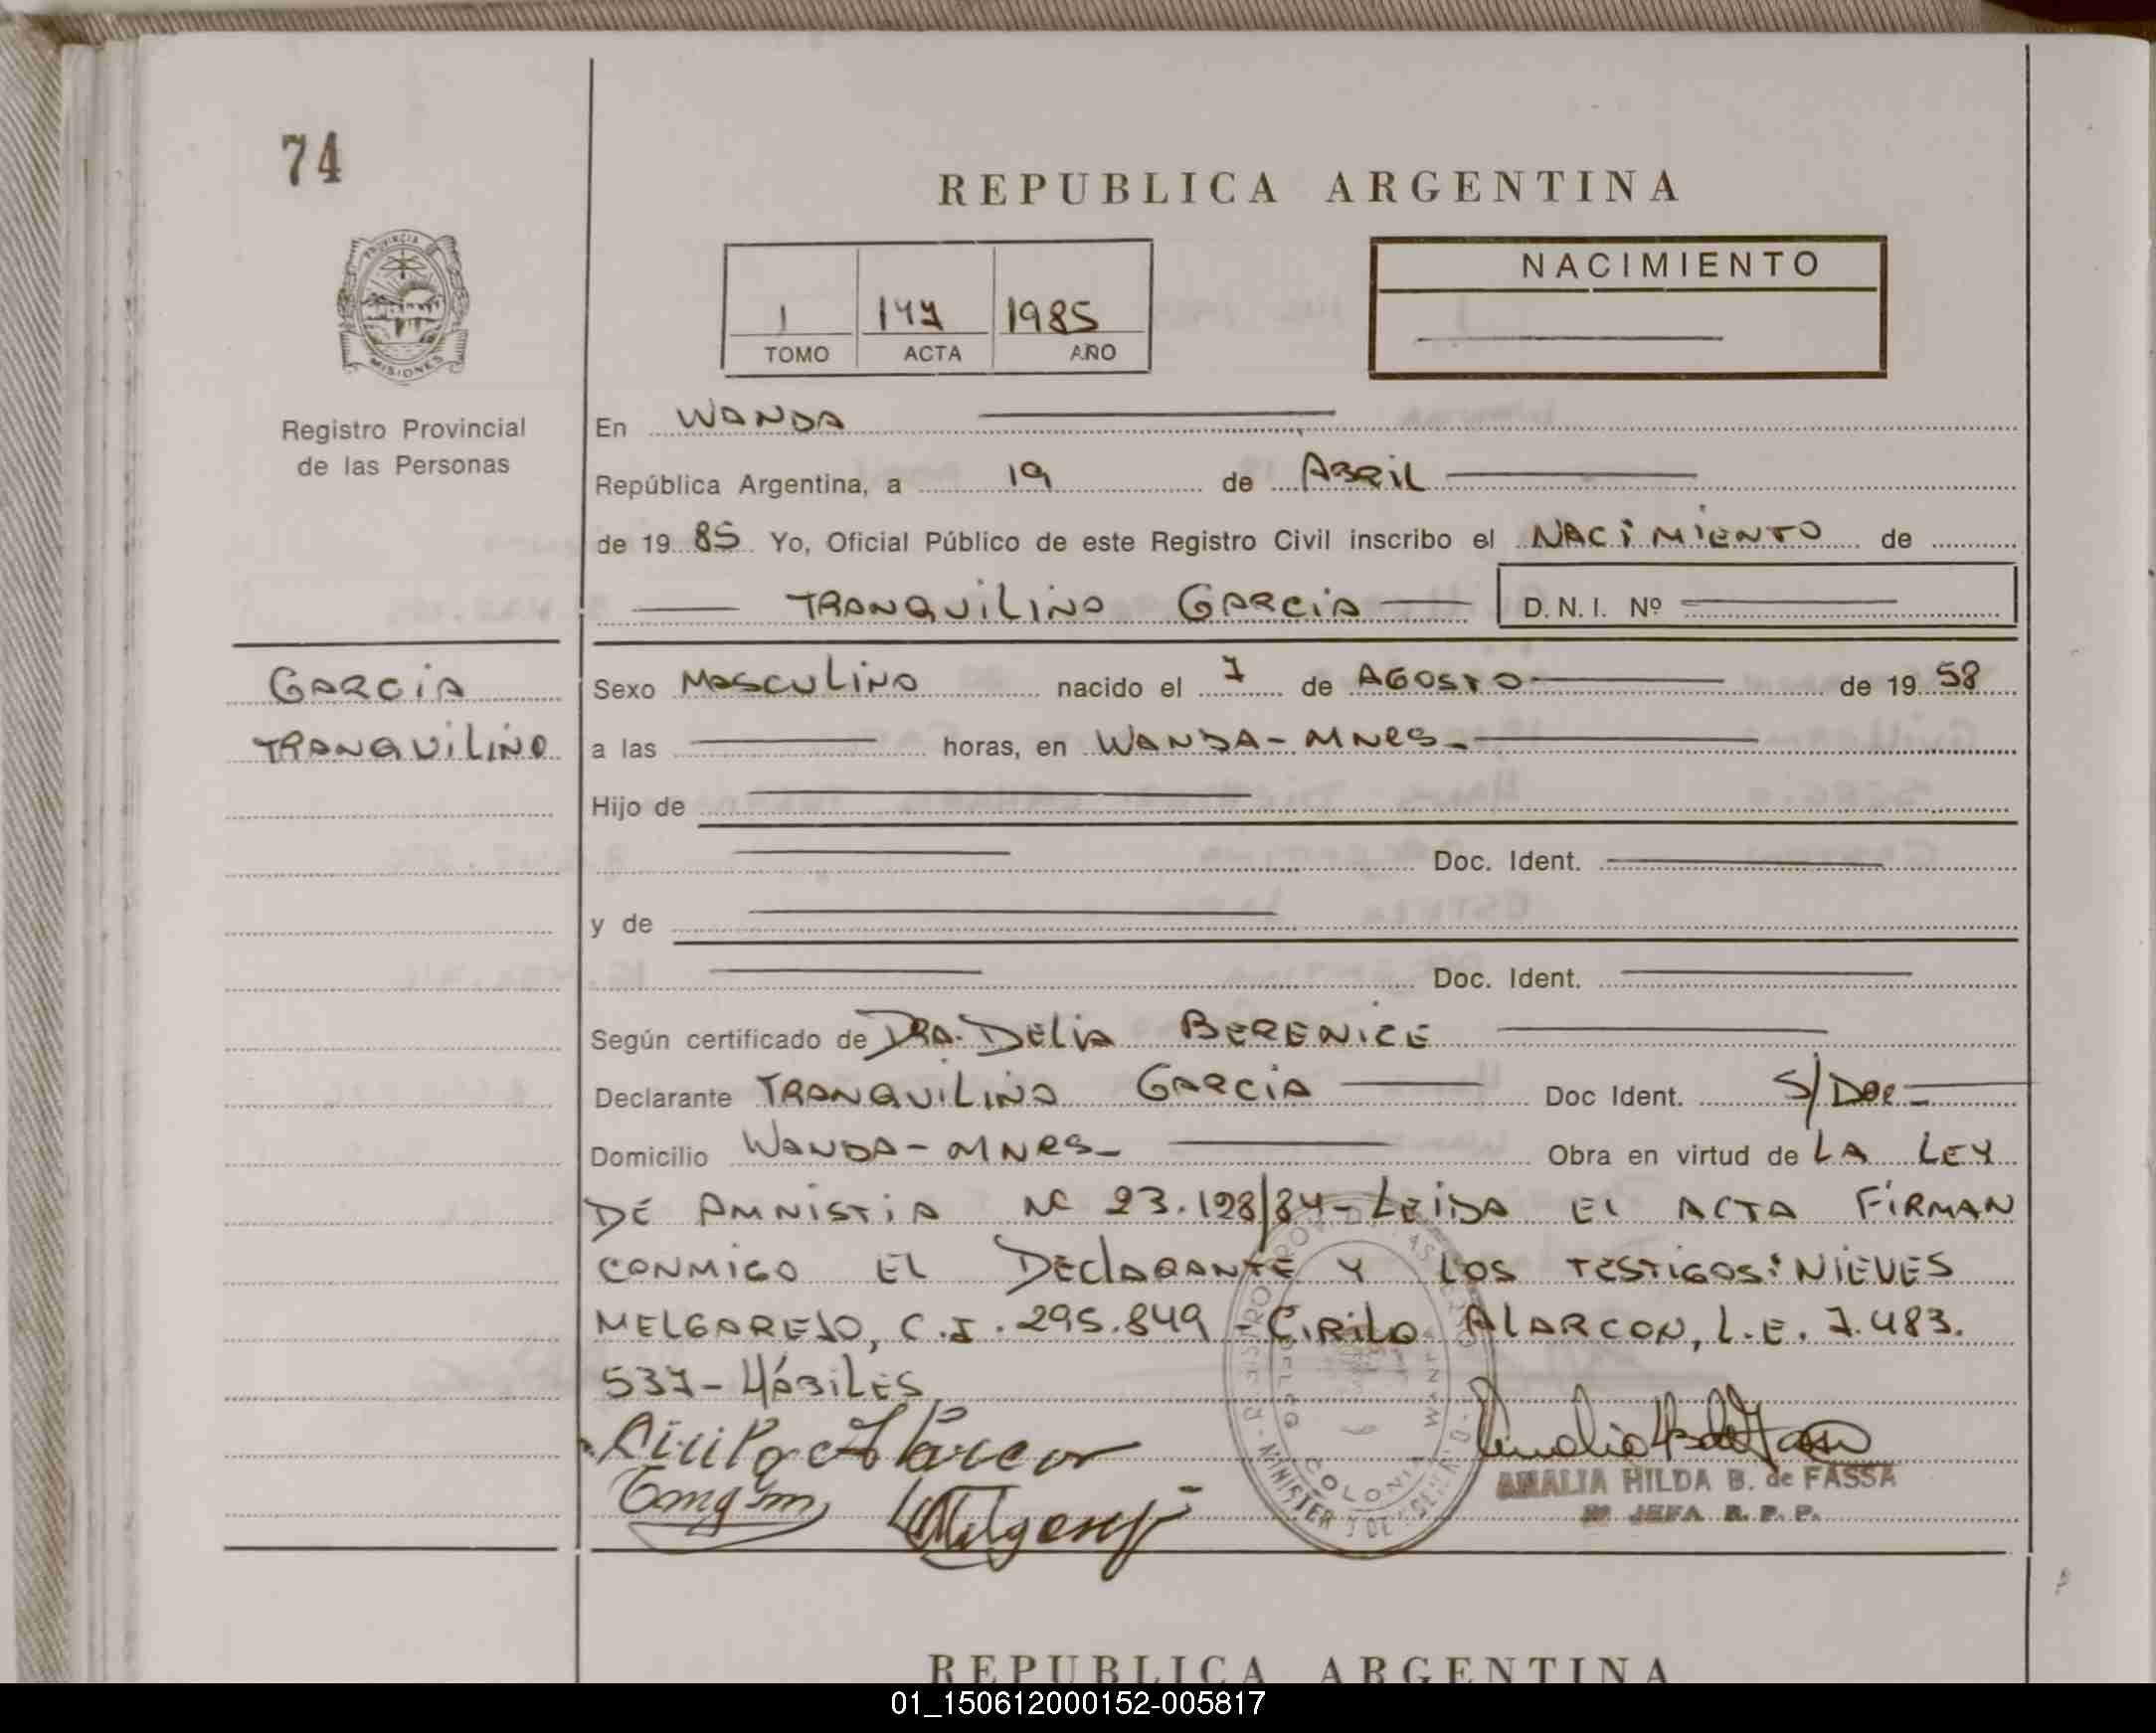 74
REPUBLICA ARGENTINA
NACIMIENTO
1 147 1985
TOMO ACTA AÑO
PROVINCIA DE MISIONES
Registro Provincial
de las Personas
En WANDA
República Argentina, a 19 de ABRIL
de 19 85 Yo, Oficial Público de este Registro Civil inscribo el NACIMIENTO de
TRANQUILINO GARCIA D.N.I. Nº
GARCIA
TRANQUILINO
Sexo MASCULINO nacido el 7 de AGOSTO de 19 58
a las horas, en WANDA - MNES -
Hijo de
Doc. Ident.
y de
Doc. Ident.
Según certificado de DRA. DELIA BERENICE
Declarante TRANQUILINO GARCIA Doc Ident. S/Doc -
Domicilio WANDA - MNES - Obra en virtud de LA LEY
DE AMNISTIA Nº 23.128/84 - LEIDA EL ACTA FIRMAN
CONMIGO EL DECLARANTE Y LOS TESTIGOS: NIEVES
MELGAREJO, C.I. 295.849 - CIRILO ALARCON, L.E. 7.483.
537 - HÁBILES
Cirilo Alarcon
COLONIA WANDA
AMALIA HILDA B. de FASSA
JEFA R. P. P.
REPUBLICA ARGENTINA
01_150612000152-005817